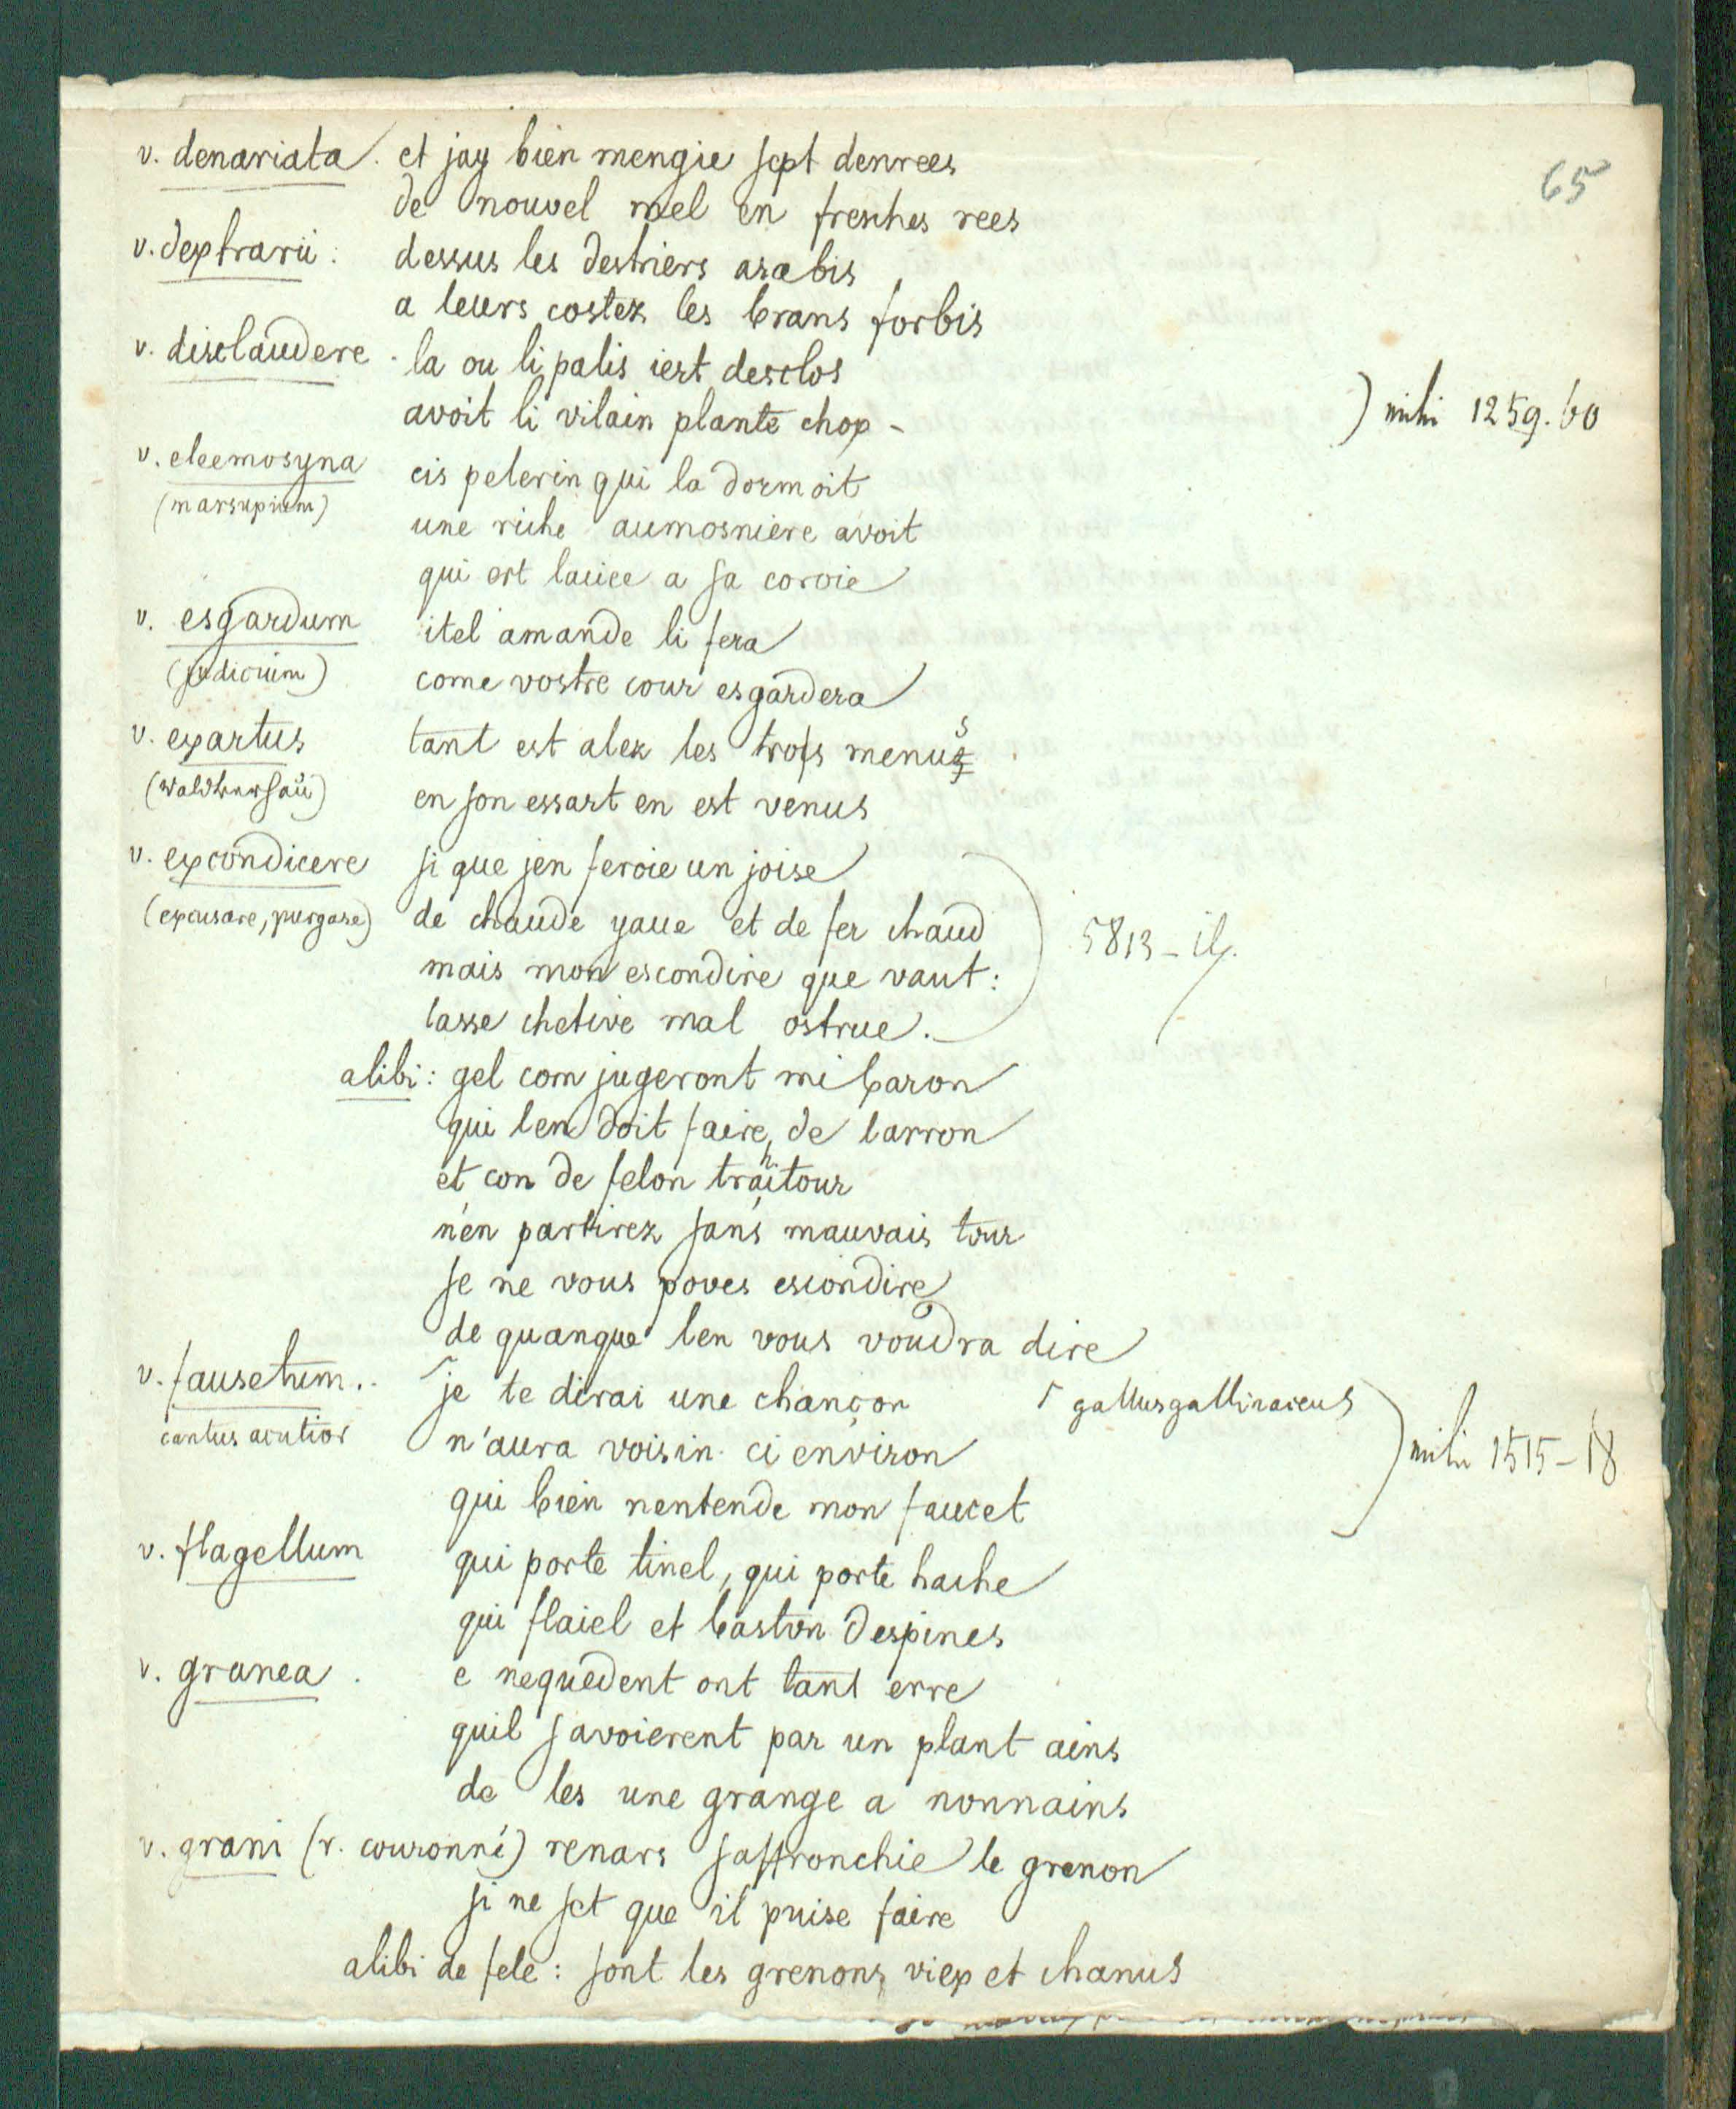 65
v. denariata. et jay bien mengie sept denrees
de nouvel mel en fresches rees
v. dextrarii: dessus les destriers arabis
a leurs costez les brans forbis
v. disclaudere. la ou li palis iert desclos
avoit li vilain plante chox - ) mihi 1259.60
v. eleemosyna cis pelerin qui la dormoit
(marsupium) une riche aumosniere avoit
qui ert lacice a sa coroie
v. esgardum itel amande li fera
(judicium) come vostre cour esgardera
v. exartus tant est alez les trois menus
en son essart en est venus
v. excondicere si que jen feroie un joise
(excusare, purgare) de chaude yaue et de fer chaud 5813-
mais mon escondire que vaut:
lasse chetive mal ostrue.
alibi: gel com jugeront mi baron
qui len doit faire, de larron
et con de felon traitour
n'en partirez sans mauvais tour
se ne vous poves escondire
de quanque len vous voudra dire
v. fausetum.. je te dirai une chançon gallus gallinaceus
cantus acutior n'aura voisin ci environ ) mihi 1515-18
qui bien nentende mon faucet
v. flagellum qui porte tinel, qui porte hache
qui flaiel et baston despines
v. granea. e nequedent ont tant erre
quil savoierent par un plant ains
de les une grange a nonnains
v. grani (r. couronné) renars saffronchie le grenon
si ne set que il puise faire
alibi de fele: sont les grenons viex et chanus